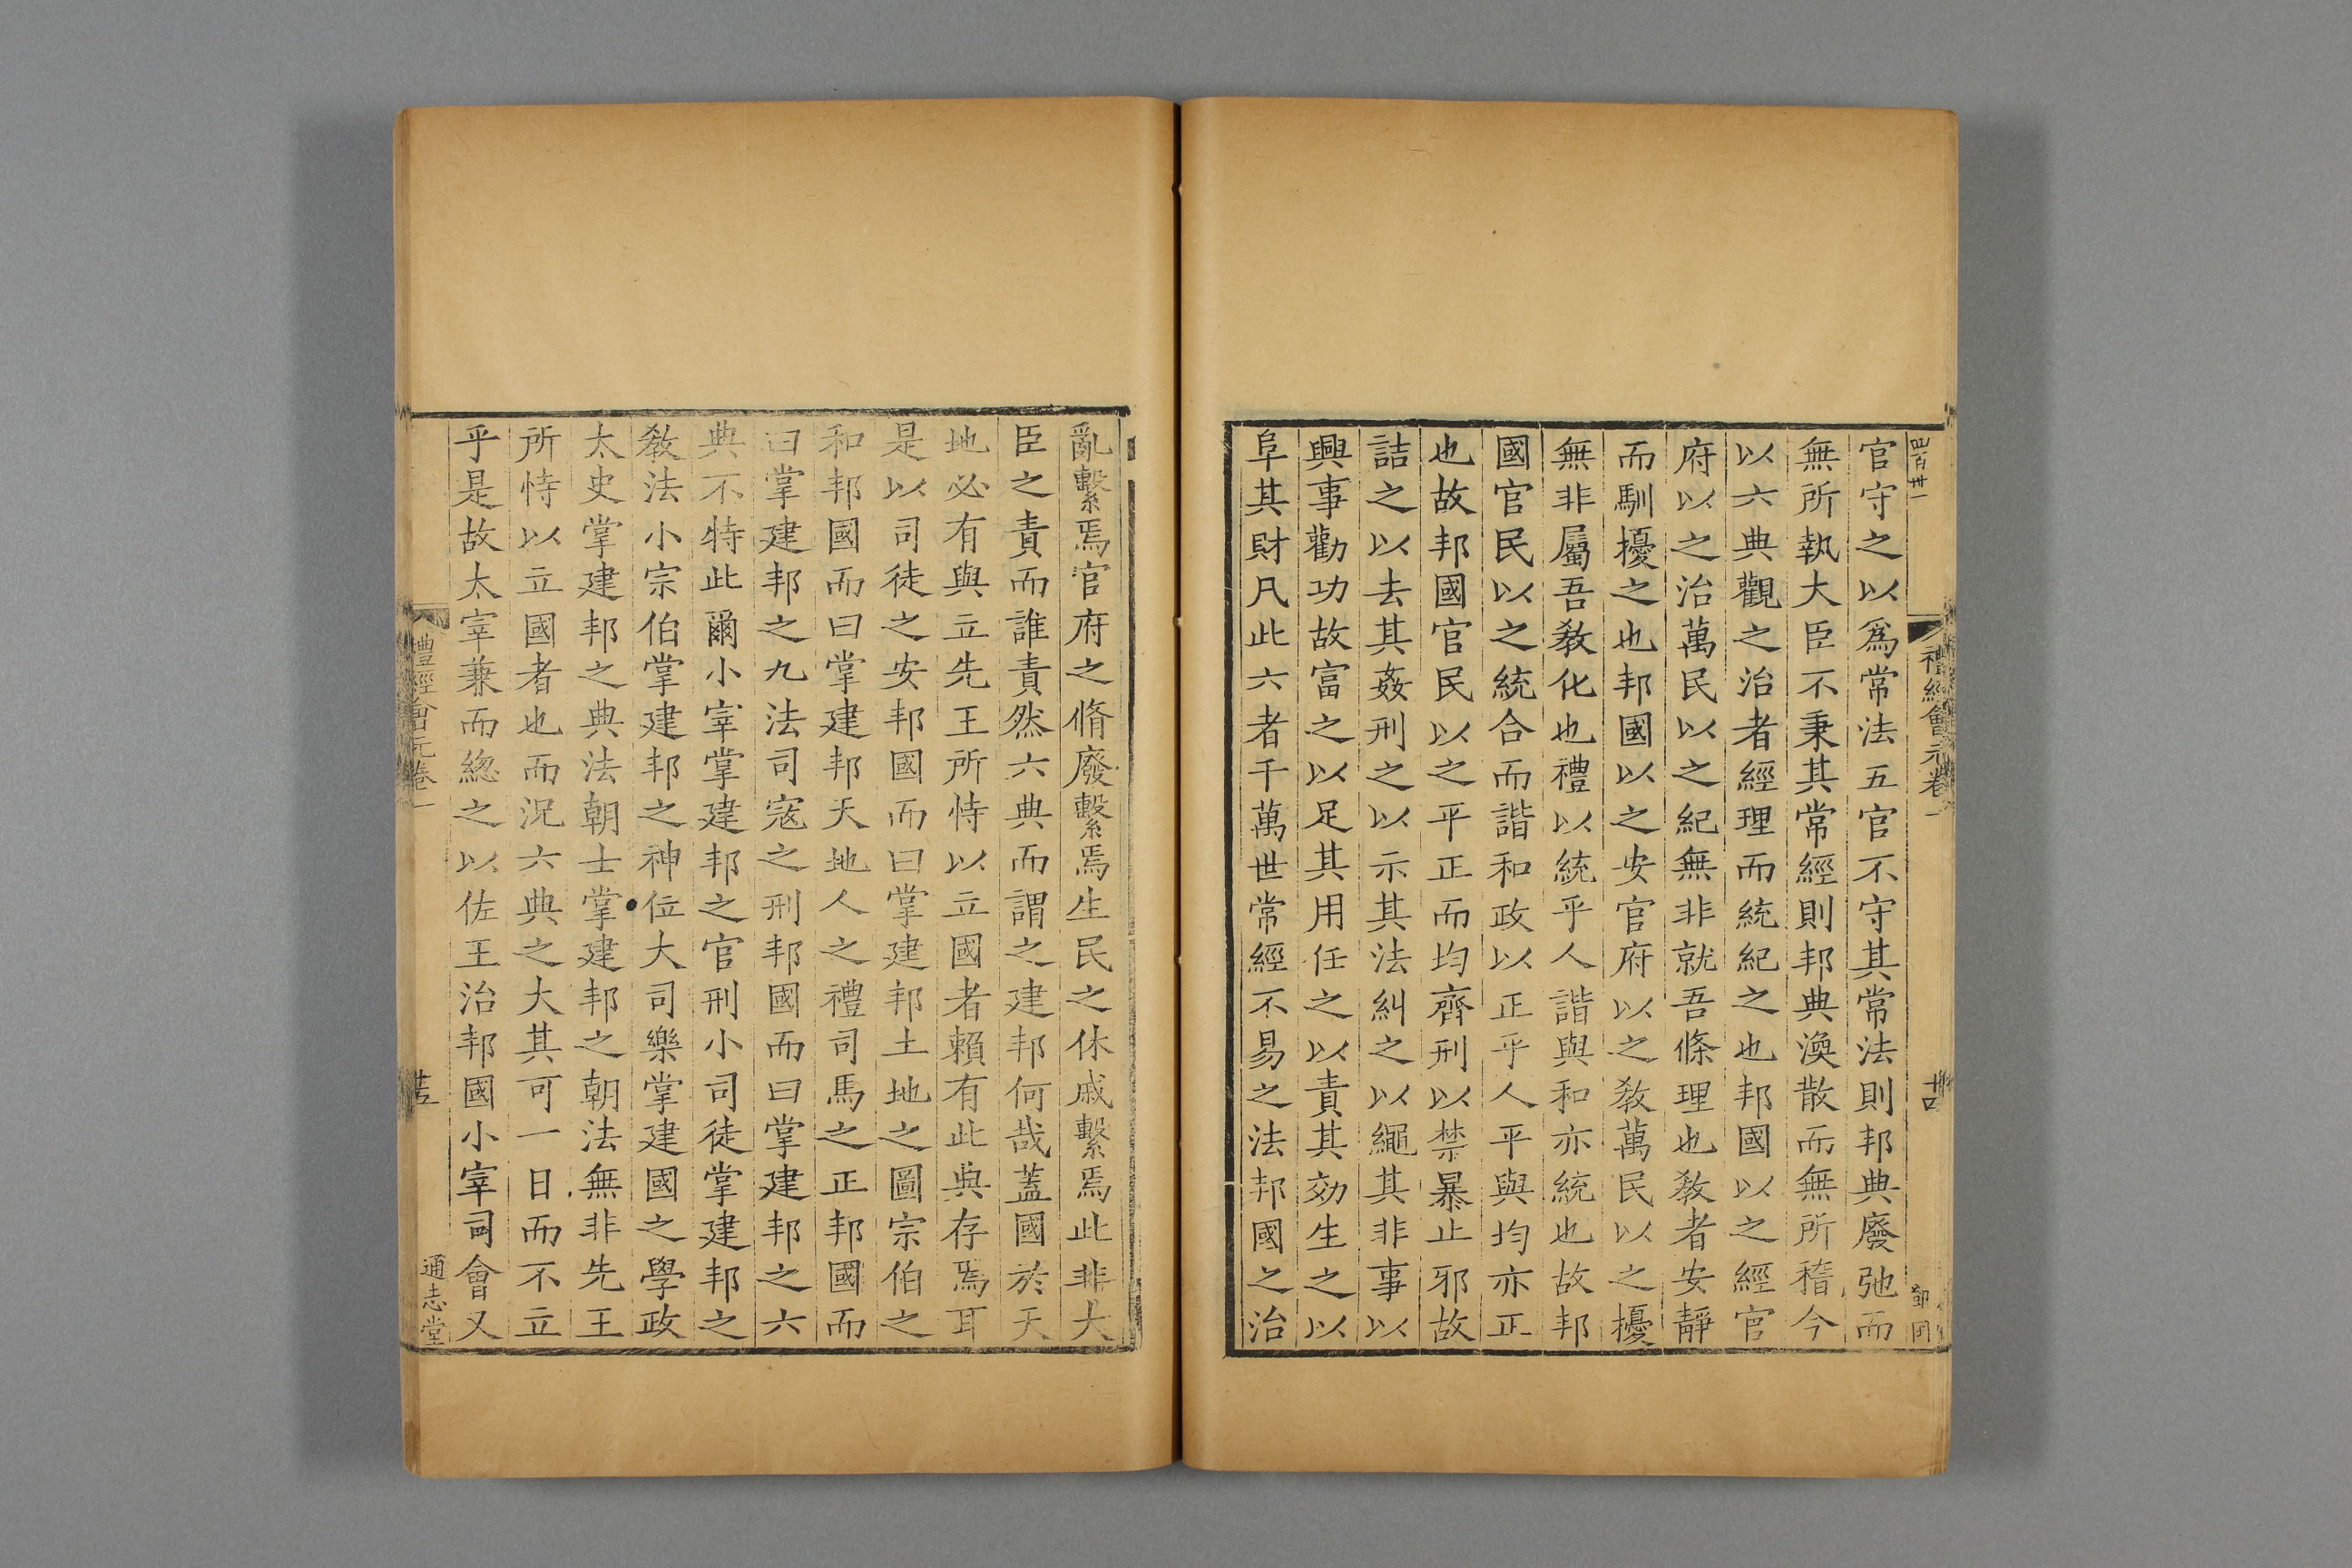 禮經會元卷一
官守之以爲常法五官不守其常法則邦典廢弛而
無所執大臣不秉其常經則邦典渙散而無所稽今
以六典觀之治者經理而統紀之也邦國以之經官
府以之治萬民以之紀無非就吾條理也敎者安靜
而馴擾之也邦國以之安官府以之敎萬民以之擾
無非屬吾敎化也禮以統乎人諧與和亦統也故邦
國官民以之統合而諧和政以正乎人平與均亦正
也故邦國官民以之平正而均齊刑以禁暴止邪故
詰之以去其姦刑之以示其法糾之以繩其非事以
興事勸功故富之以足其用任之以責其効生之以
阜其財凡此六者千萬世常經不易之法邦國之治
亂繫焉官府之脩廢繫焉生民之休戚繫焉此非大
臣之責而誰責然六典而謂之建邦何哉蓋國於天
地必有與立先王所恃以立國者賴有此典存焉耳
是以司徒之安邦國而曰掌建邦土地之圖宗伯之
和邦國而曰掌建邦天地人之禮司馬之正邦國而
曰掌建邦之九法司寇之刑邦國而曰掌建邦之六
典不特此爾小宰掌建邦之官刑小司徒掌建邦之
敎法小宗伯掌建邦之神位大司樂掌建國之學政
太史掌建邦之典法朝士掌建邦之朝法無非先王
所恃以立國者也而況六典之大其可一日而不立
乎是故太宰兼而緫之以佐王治邦國小宰司會又
禮經會元卷一
通志堂